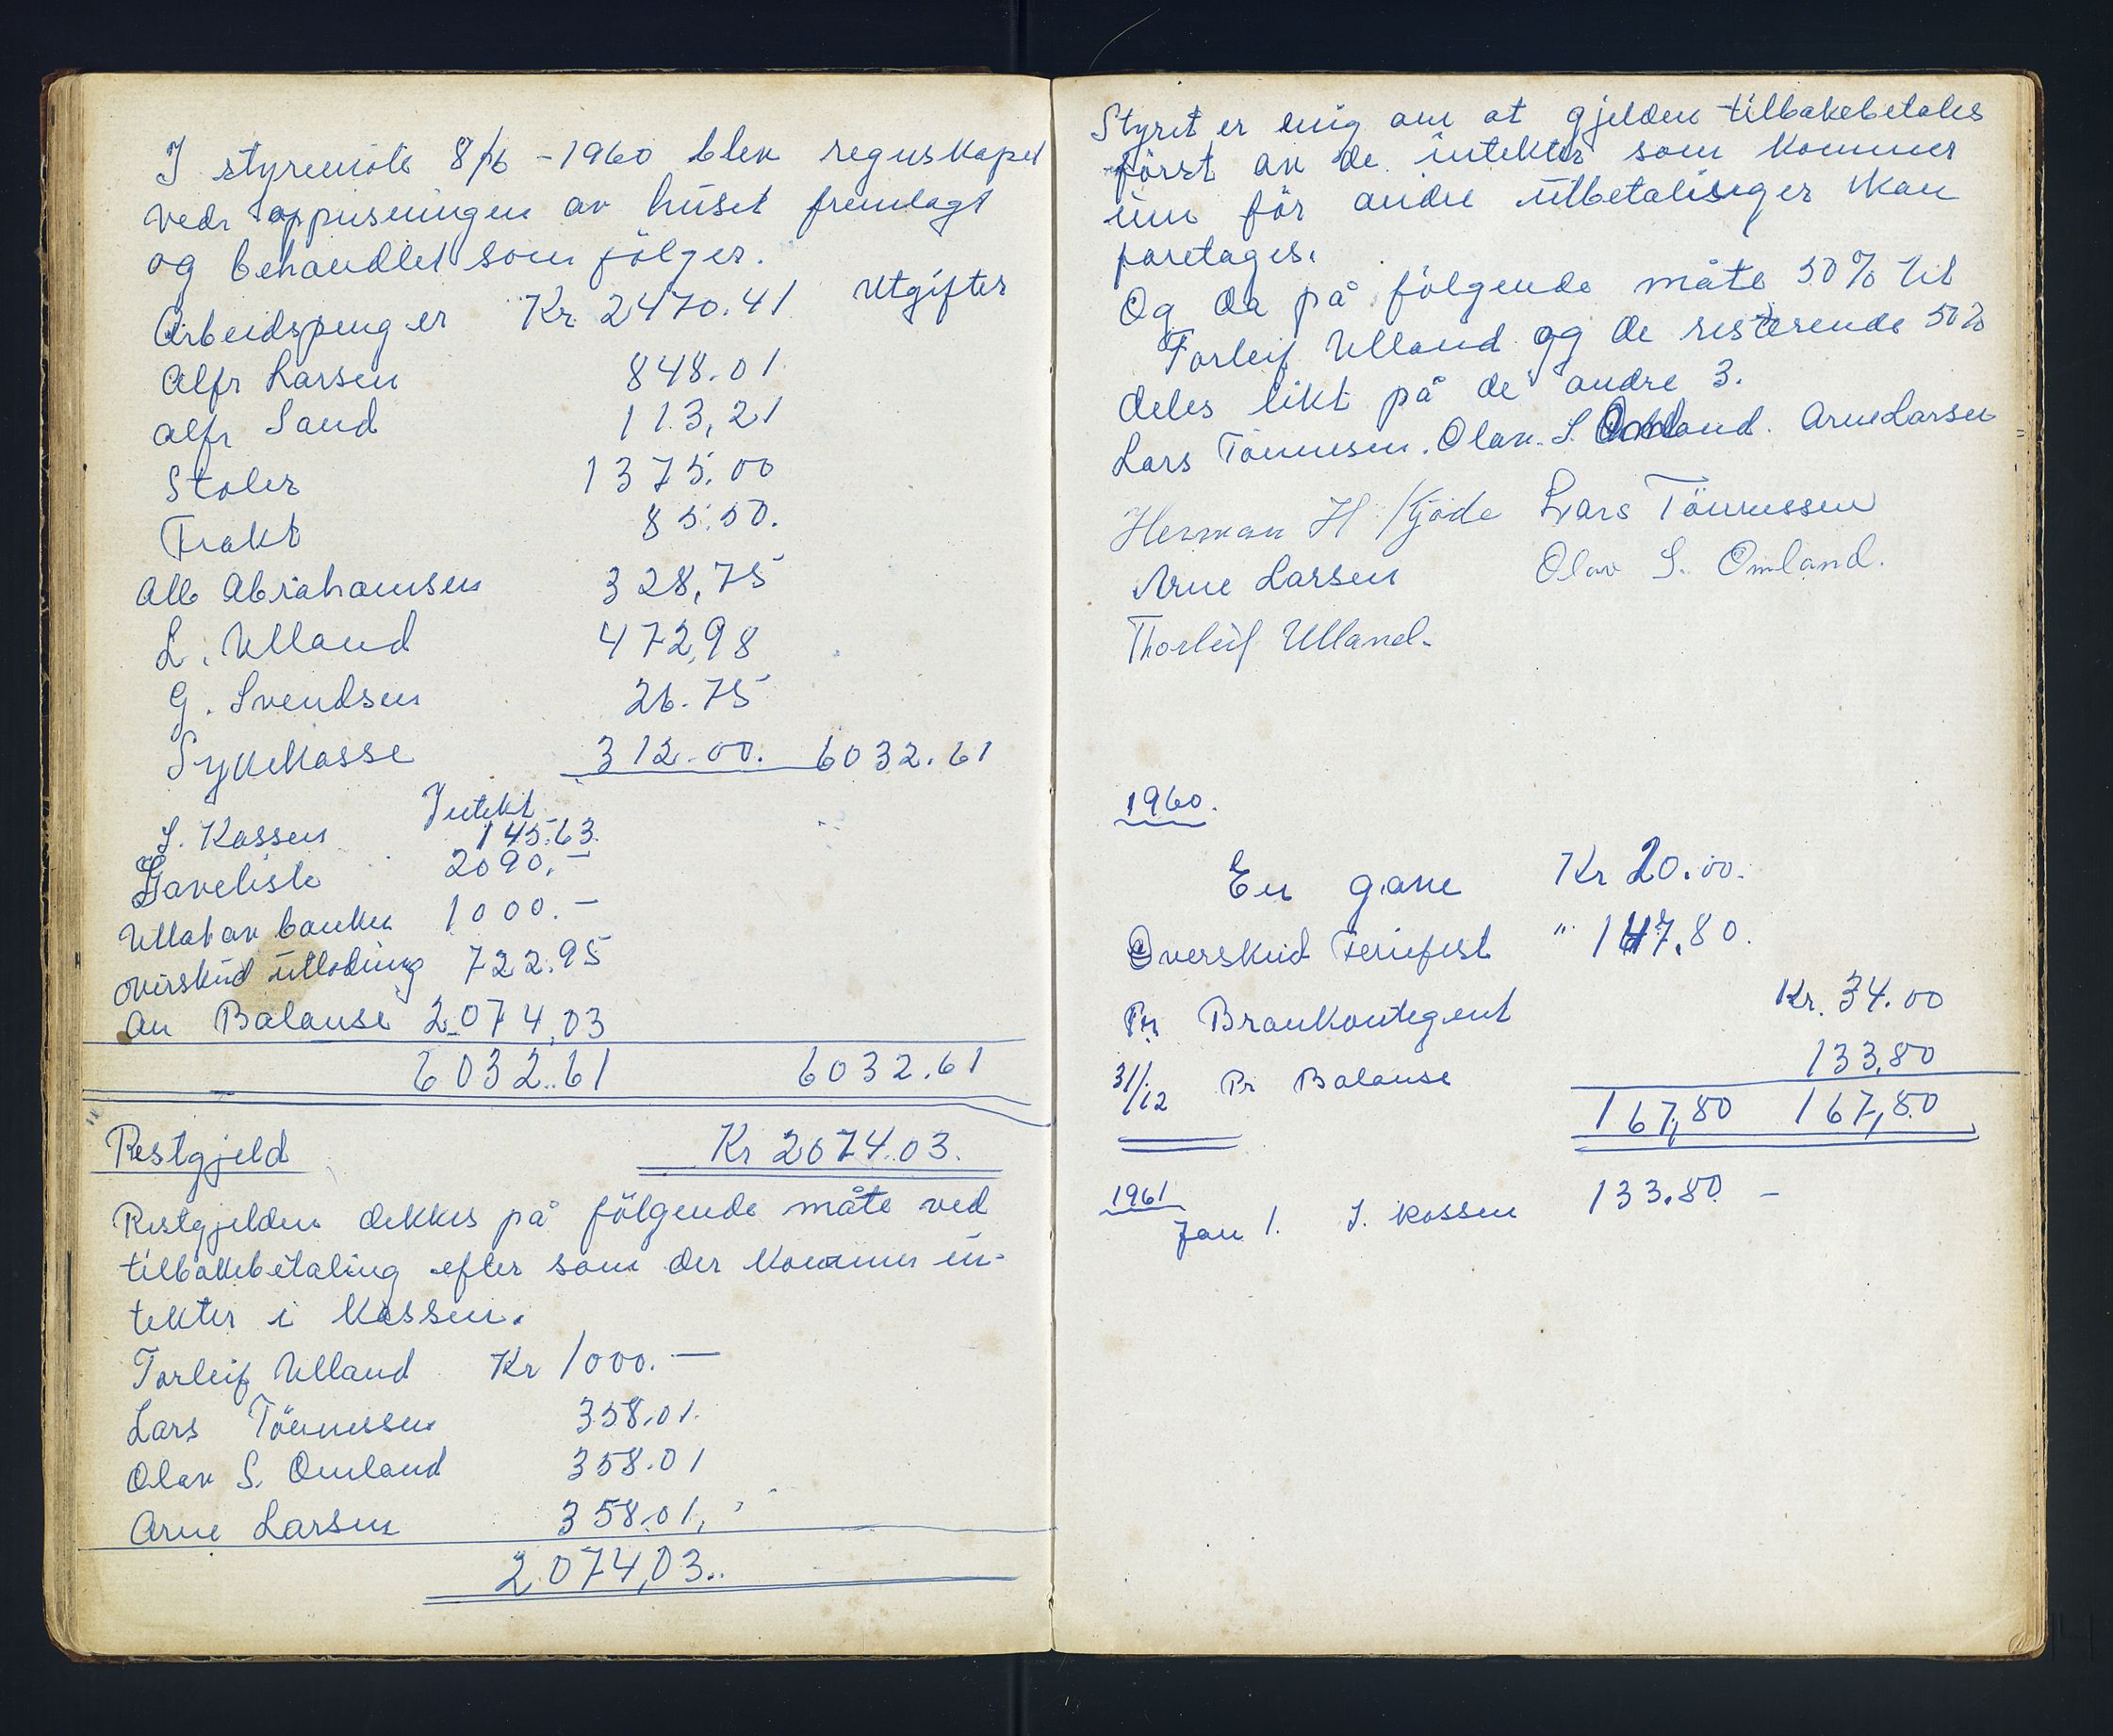 I styremöte 8/6 - 1960 blev regnskapet
vedr oppusningen av huset fremlagt
og behandlet som fölger.
Arbeidspenger Kr 2470.41 Utgifter
Alfr Larsen 848.01
Alfr Sand 113,21
Stoler 1375.00
Frakt 85.50.
Alb Abrahamsen 328,75
L. Ulland 472,98
G. Svendsen 26.75
Sykekasse 312.00. 6032.61
Intekt
I. Kassen 145.63.
Gaveliste 2090.-
Uttat av banken 1000.-
overskud utlodning 722.95
An Balanse 2074,03
6032.61 6032.61
Restgjeld Kr 2074.03.
Restgjelden dekkes på fölgende måte ved
tilbakebetaling efter som der kommer in-
tekter i Kassen.
Torleif Ulland Kr 1000.-
Lars Tönnessen 358.01.
Olav S. Omland 358.01
Arne Larsen 358.01.
2074,03..
Styret er enig om at gjelden tilbakebetales
först av de intekter som kommer
inn för andre utbetalinger kan
foretages.
Og da på fölgende måte 50% til
Torleif Ulland og de resterende 50%
deles likt på de andre 3.
Lars Tönnesen. Olav. S. Omland. Arne Larsen
Herman H Kjöde Lars Tönnessen
Arne Larsen Olav S. Omland.
Thorleif Ulland.
1960.
En gave Kr 20.00.
Overskud Feriefest " 147.80.
Pr Brankontegent Kr. 34.00
31/12 Pr Balanse 133,80
167,80 167,80
1961
Jan 1. I. kassen 133.80 -